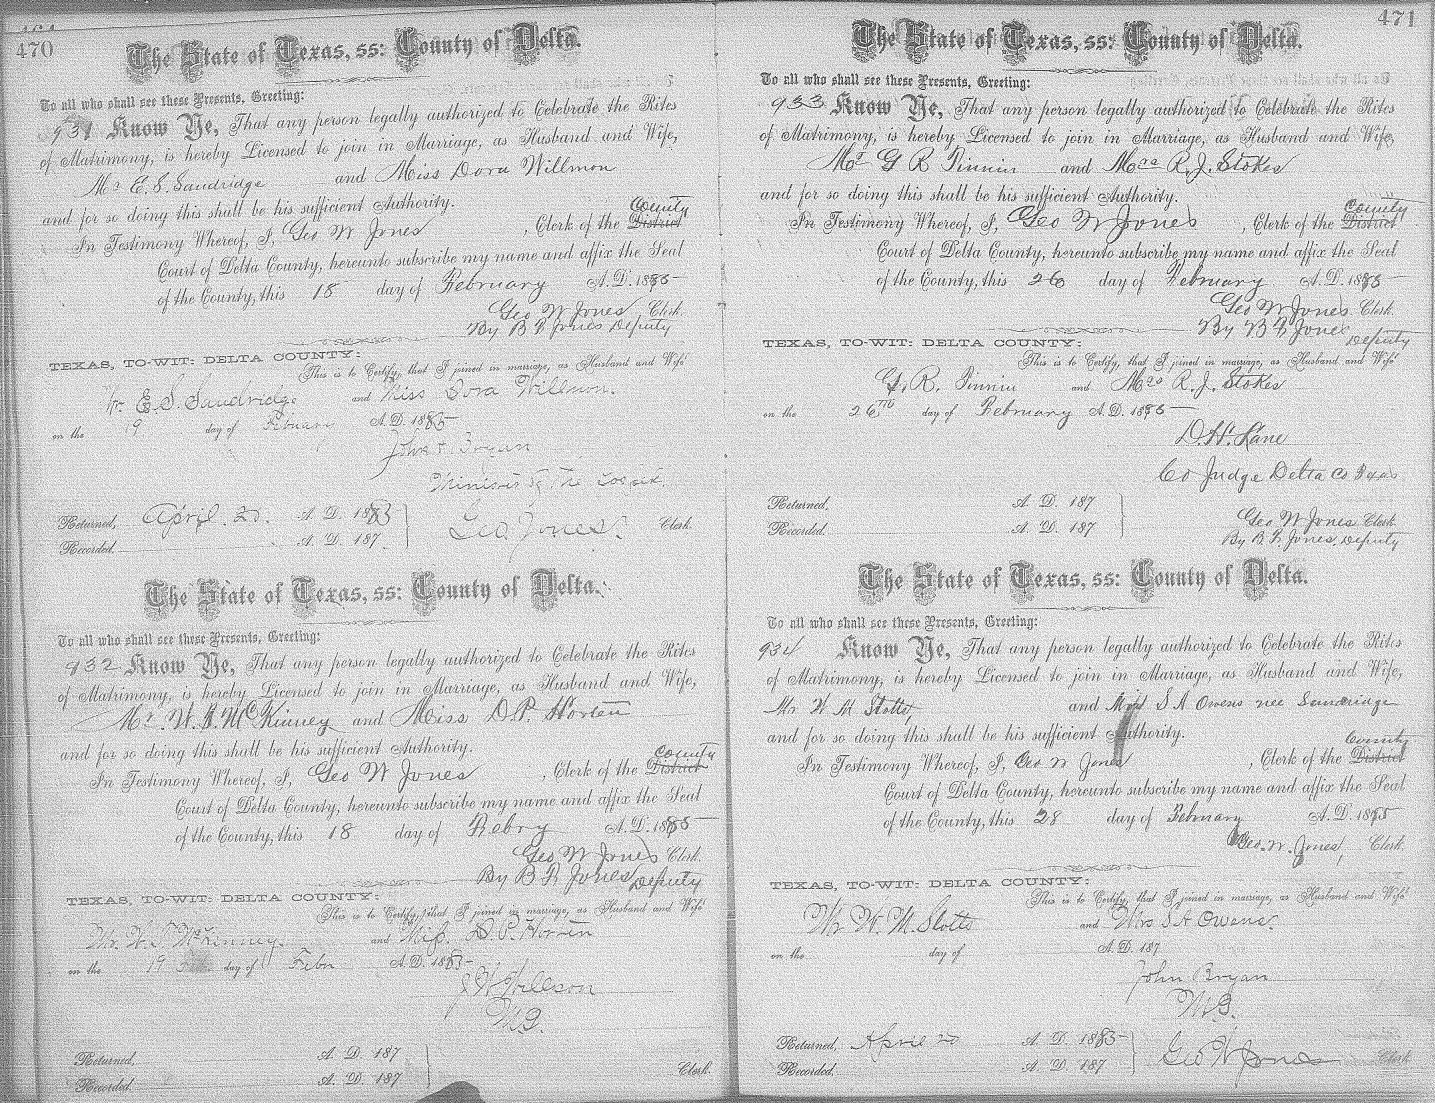 470
The State of Texas, ss: County of Delta.
To all who shall see these Presents, Greeting:
931 Know Ye, That any person legally authorized to Celebrate the Rites
of Matrimony, is hereby Licensed to join in Marriage, as Husband and Wife,
Mr E. S. Sandridge and Miss Dora Willmon
and for so doing this shall be his sufficient Authority.
County
In Testimony Whereof, I, Geo W Jones, Clerk of the District
Court of Delta County, hereunto subscribe my name and affix the Seal
of the County, this 18 day of February A. D. 1885
Geo W Jones Clerk.
By B F Jones Deputy
TEXAS, TO-WIT: DELTA COUNTY:
This is to Certify, that I joined in marriage, as Husband and Wife
Mr. E. S. Sandridge and Miss Dora Willmon.
on the 9 day of A. D. 1885
Bryan
Minister of The
Returned, April 20. A. D. 1883
Recorded. A. D. 187
Geo. Jones. Clerk.
The State of Texas, ss: County of Delta.
To all who shall see these Presents, Greeting:
932 Know Ye, That any person legally authorized to Celebrate the Rites
of Matrimony, is hereby Licensed to join in Marriage, as Husband and Wife,
Mr. McKinney and Miss D. P. Horten
and for so doing this shall be his sufficient Authority.
County
In Testimony Whereof, I, Geo W Jones, Clerk of the District
Court of Delta County, hereunto subscribe my name and affix the Seal
of the County, this 18 day of Febry A. D. 1885
Geo W Jones Clerk.
By B F Jones Deputy
TEXAS, TO-WIT: DELTA COUNTY:
This is to Certify, that I joined in marriage, as Husband and Wife
Mr. McKinney. and Miss. D. P. Horten
on the 19 day of Febr A. D. 1885
M.G.
Returned, A. D. 187
Recorded. A. D. 187
Clerk.
471
The State of Texas, ss: County of Delta.
To all who shall see these Presents, Greeting:
933 Know Ye, That any person legally authorized to Celebrate the Rites
of Matrimony, is hereby Licensed to join in Marriage, as Husband and Wife,
Mr G R and Mrs R. J. Stokes
and for so doing this shall be his sufficient Authority.
County
In Testimony Whereof, I, Geo W Jones, Clerk of the District
Court of Delta County, hereunto subscribe my name and affix the Seal
of the County, this 26 day of February A. D. 1885
Geo W Jones Clerk.
By B F Jones
Deputy
TEXAS, TO-WIT: DELTA COUNTY:
This is to Certify, that I joined in marriage, as Husband and Wife
G. R. and Mrs R. J. Stokes
on the 26th day of February A. D. 1885
D. H. Lane
Co Judge Delta Co Texas
Returned, A. D. 187
Recorded. A. D. 187
Geo W Jones Clerk
By B F Jones, Deputy
The State of Texas, ss: County of Delta.
To all who shall see these Presents, Greeting:
934 Know Ye, That any person legally authorized to Celebrate the Rites
of Matrimony, is hereby Licensed to join in Marriage, as Husband and Wife,
Mr W M Stotts and Mrs S A Owens nee Sandridge
and for so doing this shall be his sufficient Authority.
County
In Testimony Whereof, I, Geo W Jones, Clerk of the District
Court of Delta County, hereunto subscribe my name and affix the Seal
of the County, this 28 day of February A. D. 1885
Geo. W. Jones, Clerk.
TEXAS, TO-WIT: DELTA COUNTY:
This is to Certify, that I joined in marriage, as Husband and Wife
Mr W. M. Stotts and Mrs S A Owens.
on the day of A. D. 187
John Bryan
M.G.
Returned, April 20 A. D. 1885
Recorded. A. D. 187
Geo W Jones Clerk